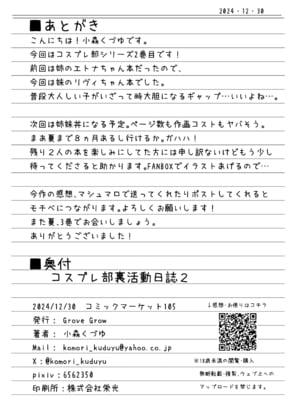 2024・12・30
■あとがき
こんにちは！小森くづゆです。
今回はコスプレ部シリーズ2巻目です！
前回は姉のエトナちゃん本だったので、
今回は妹のリヴィちゃん本でした。
普段大人しい子がいざって時大胆になるギャップ…いいよね…。
次回は姉妹丼になる予定。ページ数も作画コストもヤバそう。
まぁ夏まで８ヵ月あるし行けるか。ガハハ！
残り２人の本を楽しみにしてた方には申し訳ないけどもう少し
待ってくださると助かります。FANBOXでイラストあげるので…
今作の感想、マシュマロで送ってくれたりポストしてくれると
モチベにつながります。よろしくお願いします！
また夏、3巻でお会いしましょう。
ありがとうございました！
■奥付
コスプレ部裏活動日誌２
2024/12/30　コミックマーケット105
発行： Grove Grow
著者： 小森くづゆ
Mail： komori_kuduyu@yahoo.co.jp
X：@komori_kuduyu
pixiv：6562350
印刷所：株式会社栄光
↓感想・お便りはコチラ
※18歳未満の閲覧・購入
無断転載・複製、ウェブ上への
アップロードを禁じます。